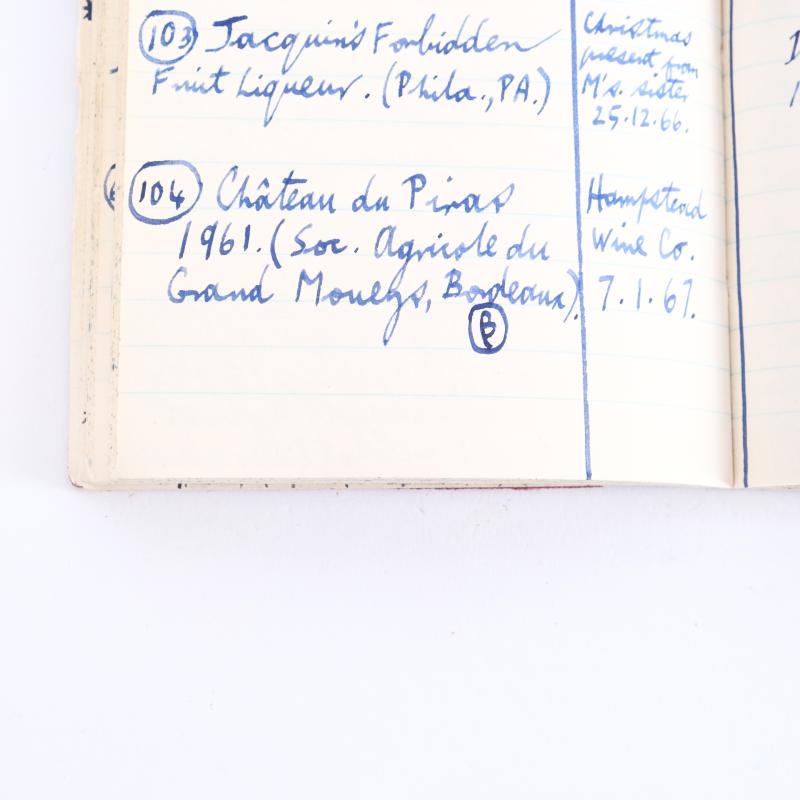 103 Jacquin's Forbidden
Fruit Liqueur. (Phila., PA.)
Christmas
present from
M's. sister
25.12.66.
104 Château du Piras
1961. (Soc. Agricole du
Grand Moueys, Bordeaux).
B
Hampstead
Wine Co.
7.1.67.